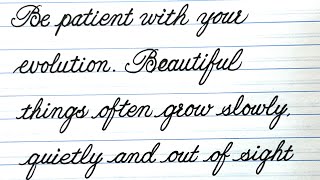 Be patient with your
evolution. Beautiful
things often grow slowly,
quietly and out of sight